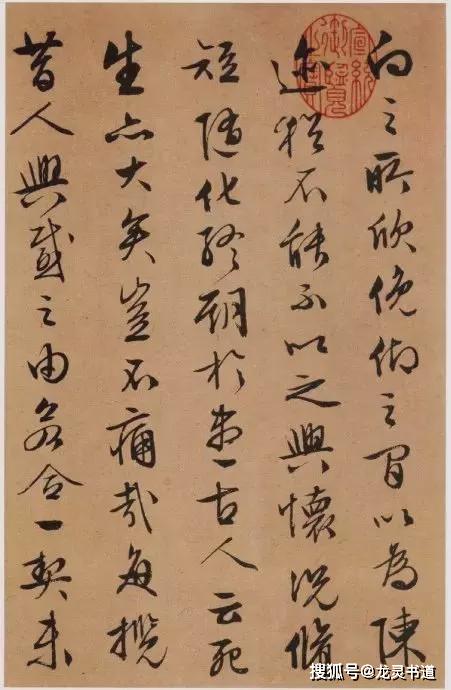 向之所欣俛仰之間以為陳
迹猶不能不以之興懷況脩
短隨化終期於盡古人云死
生亦大矣豈不痛哉每攬
昔人興感之由若合一契未
宣統御覽之寶
搜狐号@龙灵书道